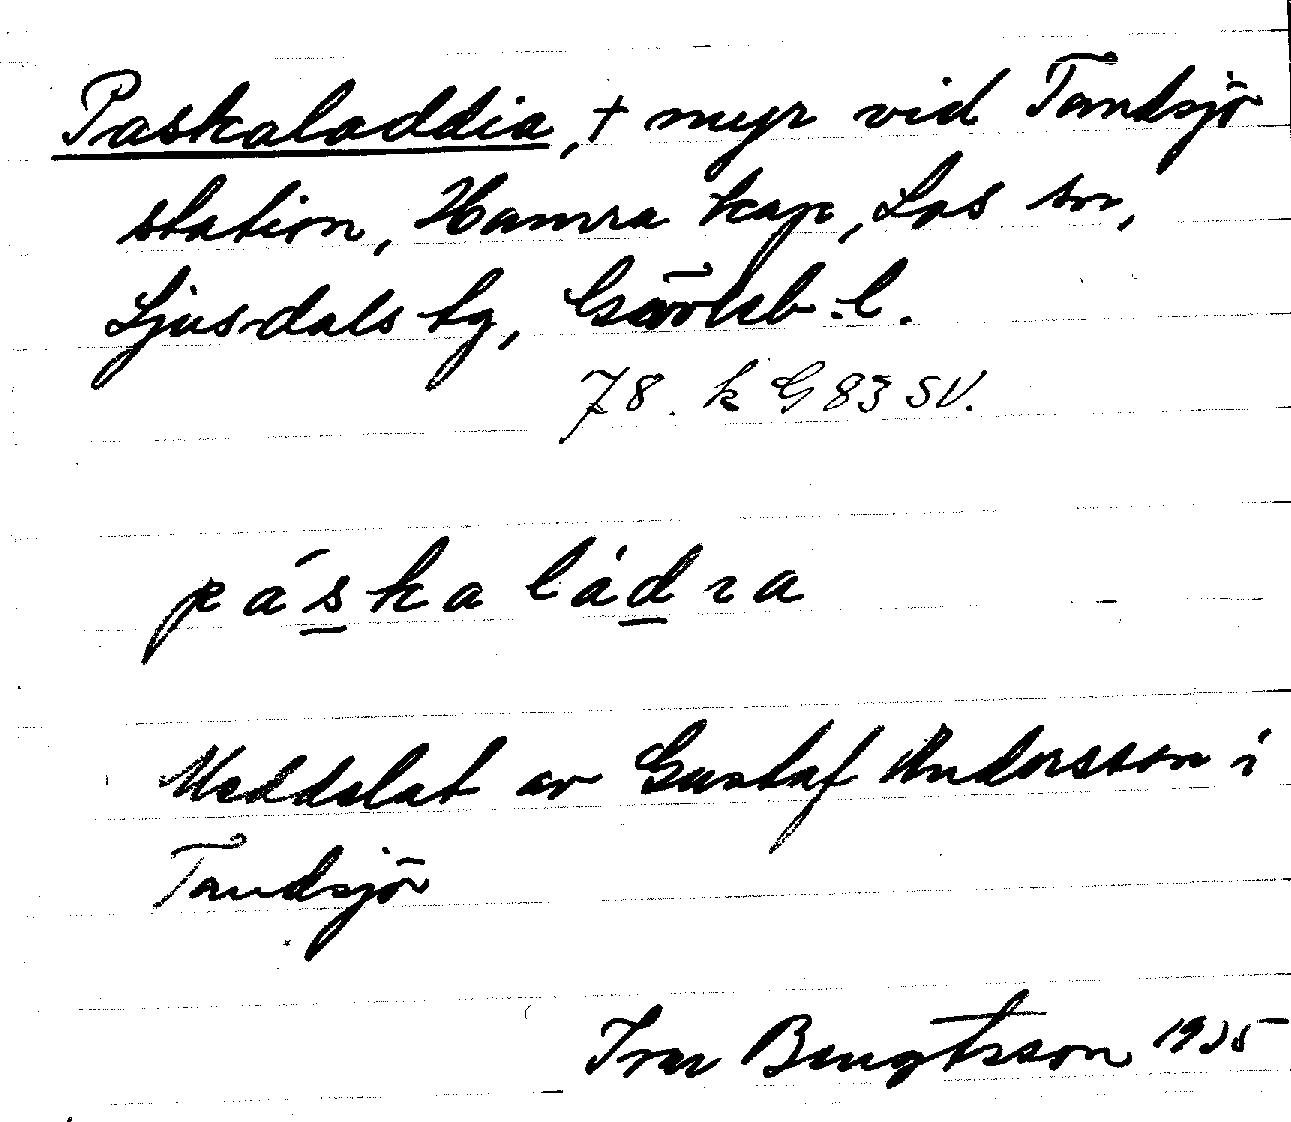 Paskaladdia, + myr vid Tandsjö
station, Hamra kap, Los sn,
Ljusdals tg, Gävleb. l.
78. k G 83 SV.
páskaládra
Meddelat av Gustaf Andersson i
Tandsjö
Ivar Bengtsson 1935